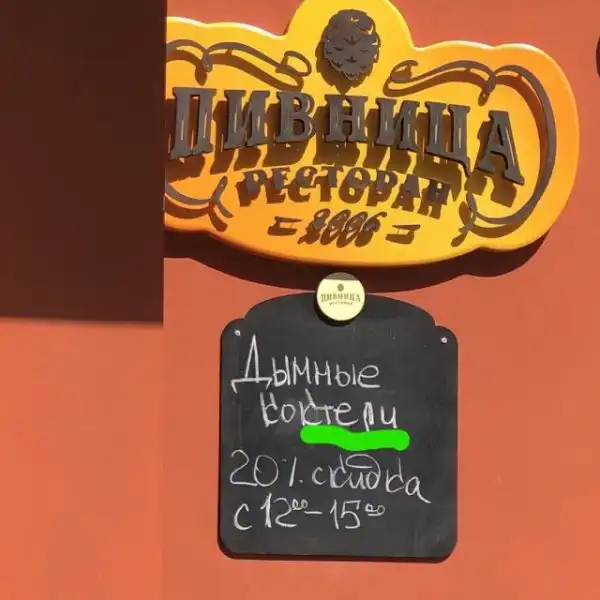 ПИВНИЦА
РЕСТОРАН
2006
ПИВНИЦА
РЕСТОРАН
Дымные
коктели
20% скидка
с 12⁰⁰-15⁰⁰